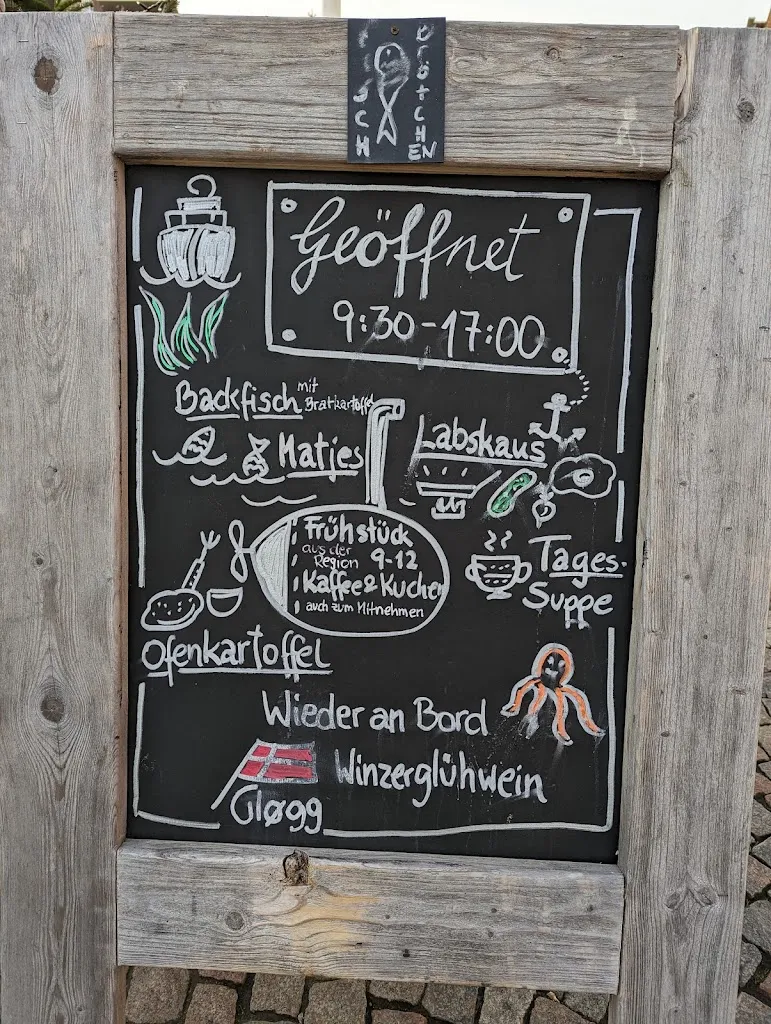 BRÖTCHEN
Geöffnet
9:30-17:00
Backfisch mit Bratkartoffel
Matjes
Labskaus
Frühstück
aus der Region 9-12
Kaffee & Kuchen
auch zum Mitnehmen
Tages-
Suppe
Ofenkartoffel
Wieder an Bord
Winzerglühwein
Gløgg